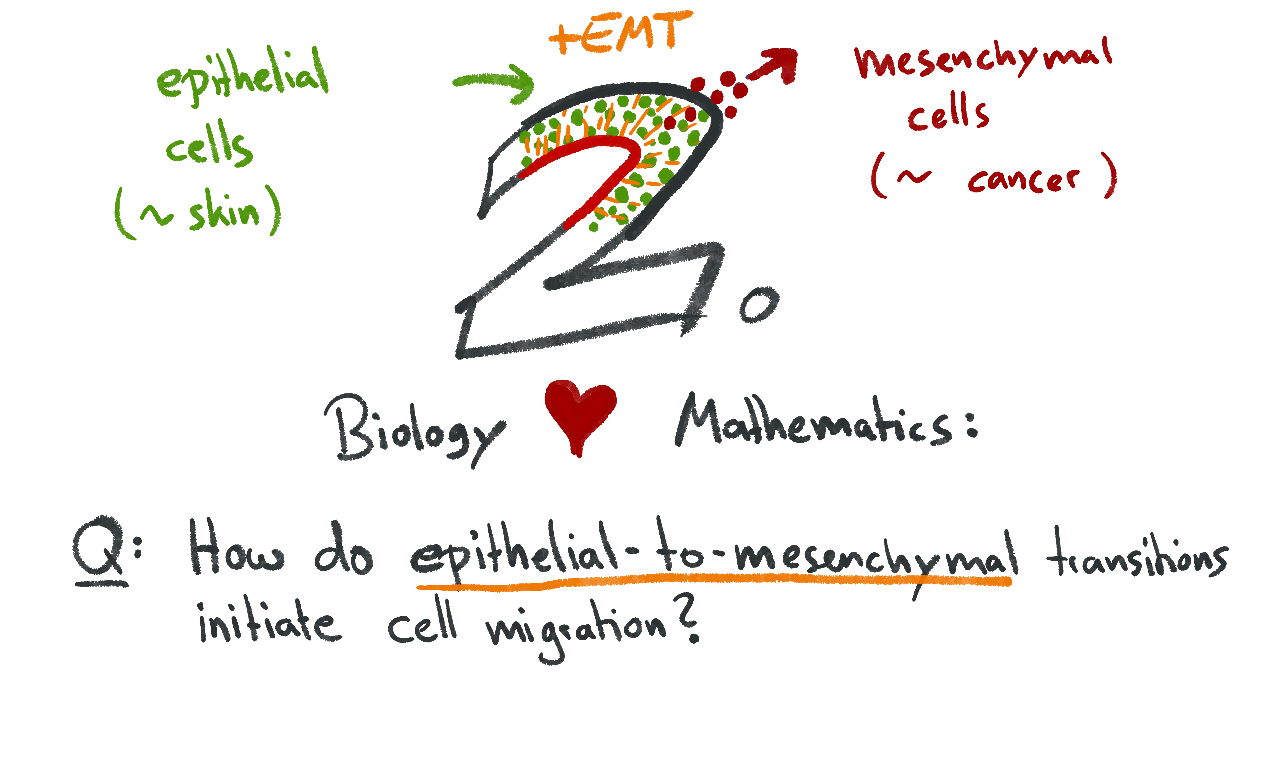 +EMT
epithelial
cells
(~ skin)
mesenchymal
cells
(~ cancer)
2.
Biology ♥ Mathematics:
Q: How do epithelial-to-mesenchymal transitions
initiate cell migration?